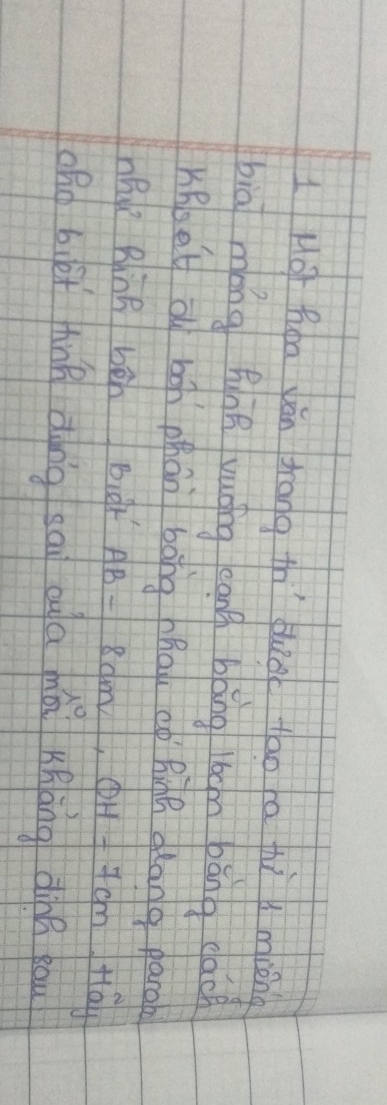 1 Một hoa văn trang trí được tạo ra từ 1 miếng
bìa mỏng hình vuông cạnh bằng 16cm bằng cách
Khoét đi bốn phần bằng nhau có hình dạng parabol
như hình bên. Biết AB = 8cm, OH = 7cm. Hãy
cho biết tính đúng sai của mỗi khẳng định sau